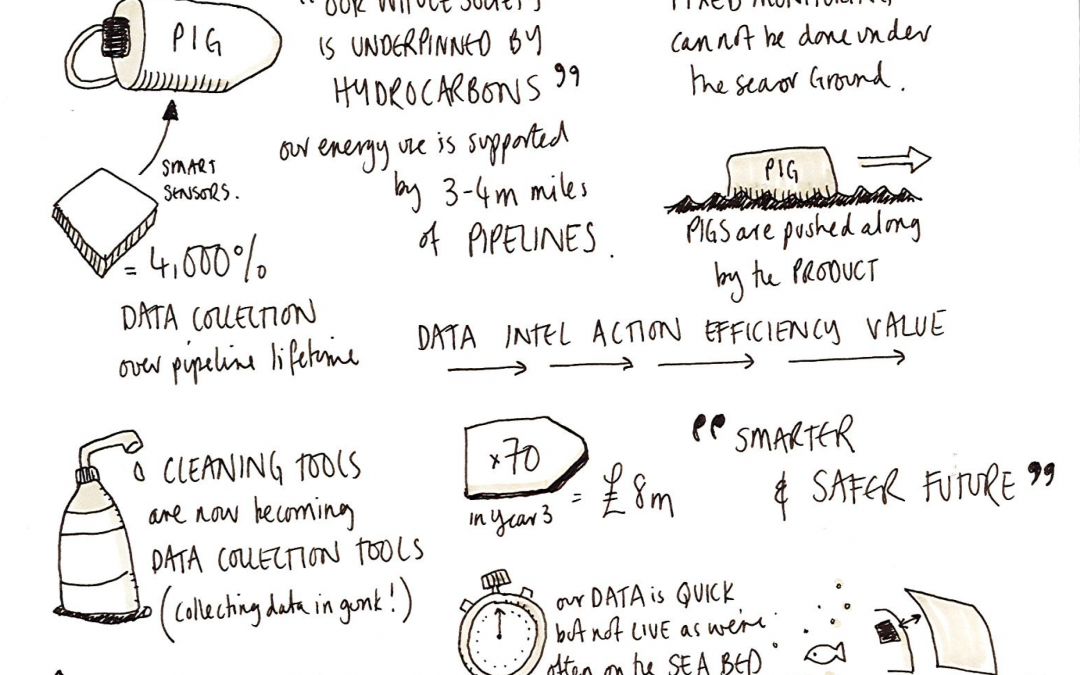 PIG
SMART
SENSORS.
= 4,000%
DATA COLLECTION
over pipeline lifetime
"OUR WHOLE SOCIETY
IS UNDERPINNED BY
HYDROCARBONS"
our energy use is supported
by 3-4m miles
of PIPELINES.
FIXED MONITORING
cannot be done under
the sea or Ground.
PIG
PIGS are pushed along
by the PRODUCT
DATA INTEL ACTION EFFICIENCY VALUE
CLEANING TOOLS
are now becoming
DATA COLLECTION TOOLS
(collecting data in gunk!)
x70
in year 3
= £8m
"SMARTER
& SAFER FUTURE"
our DATA is QUICK
but not LIVE as we're
often on the SEA BED